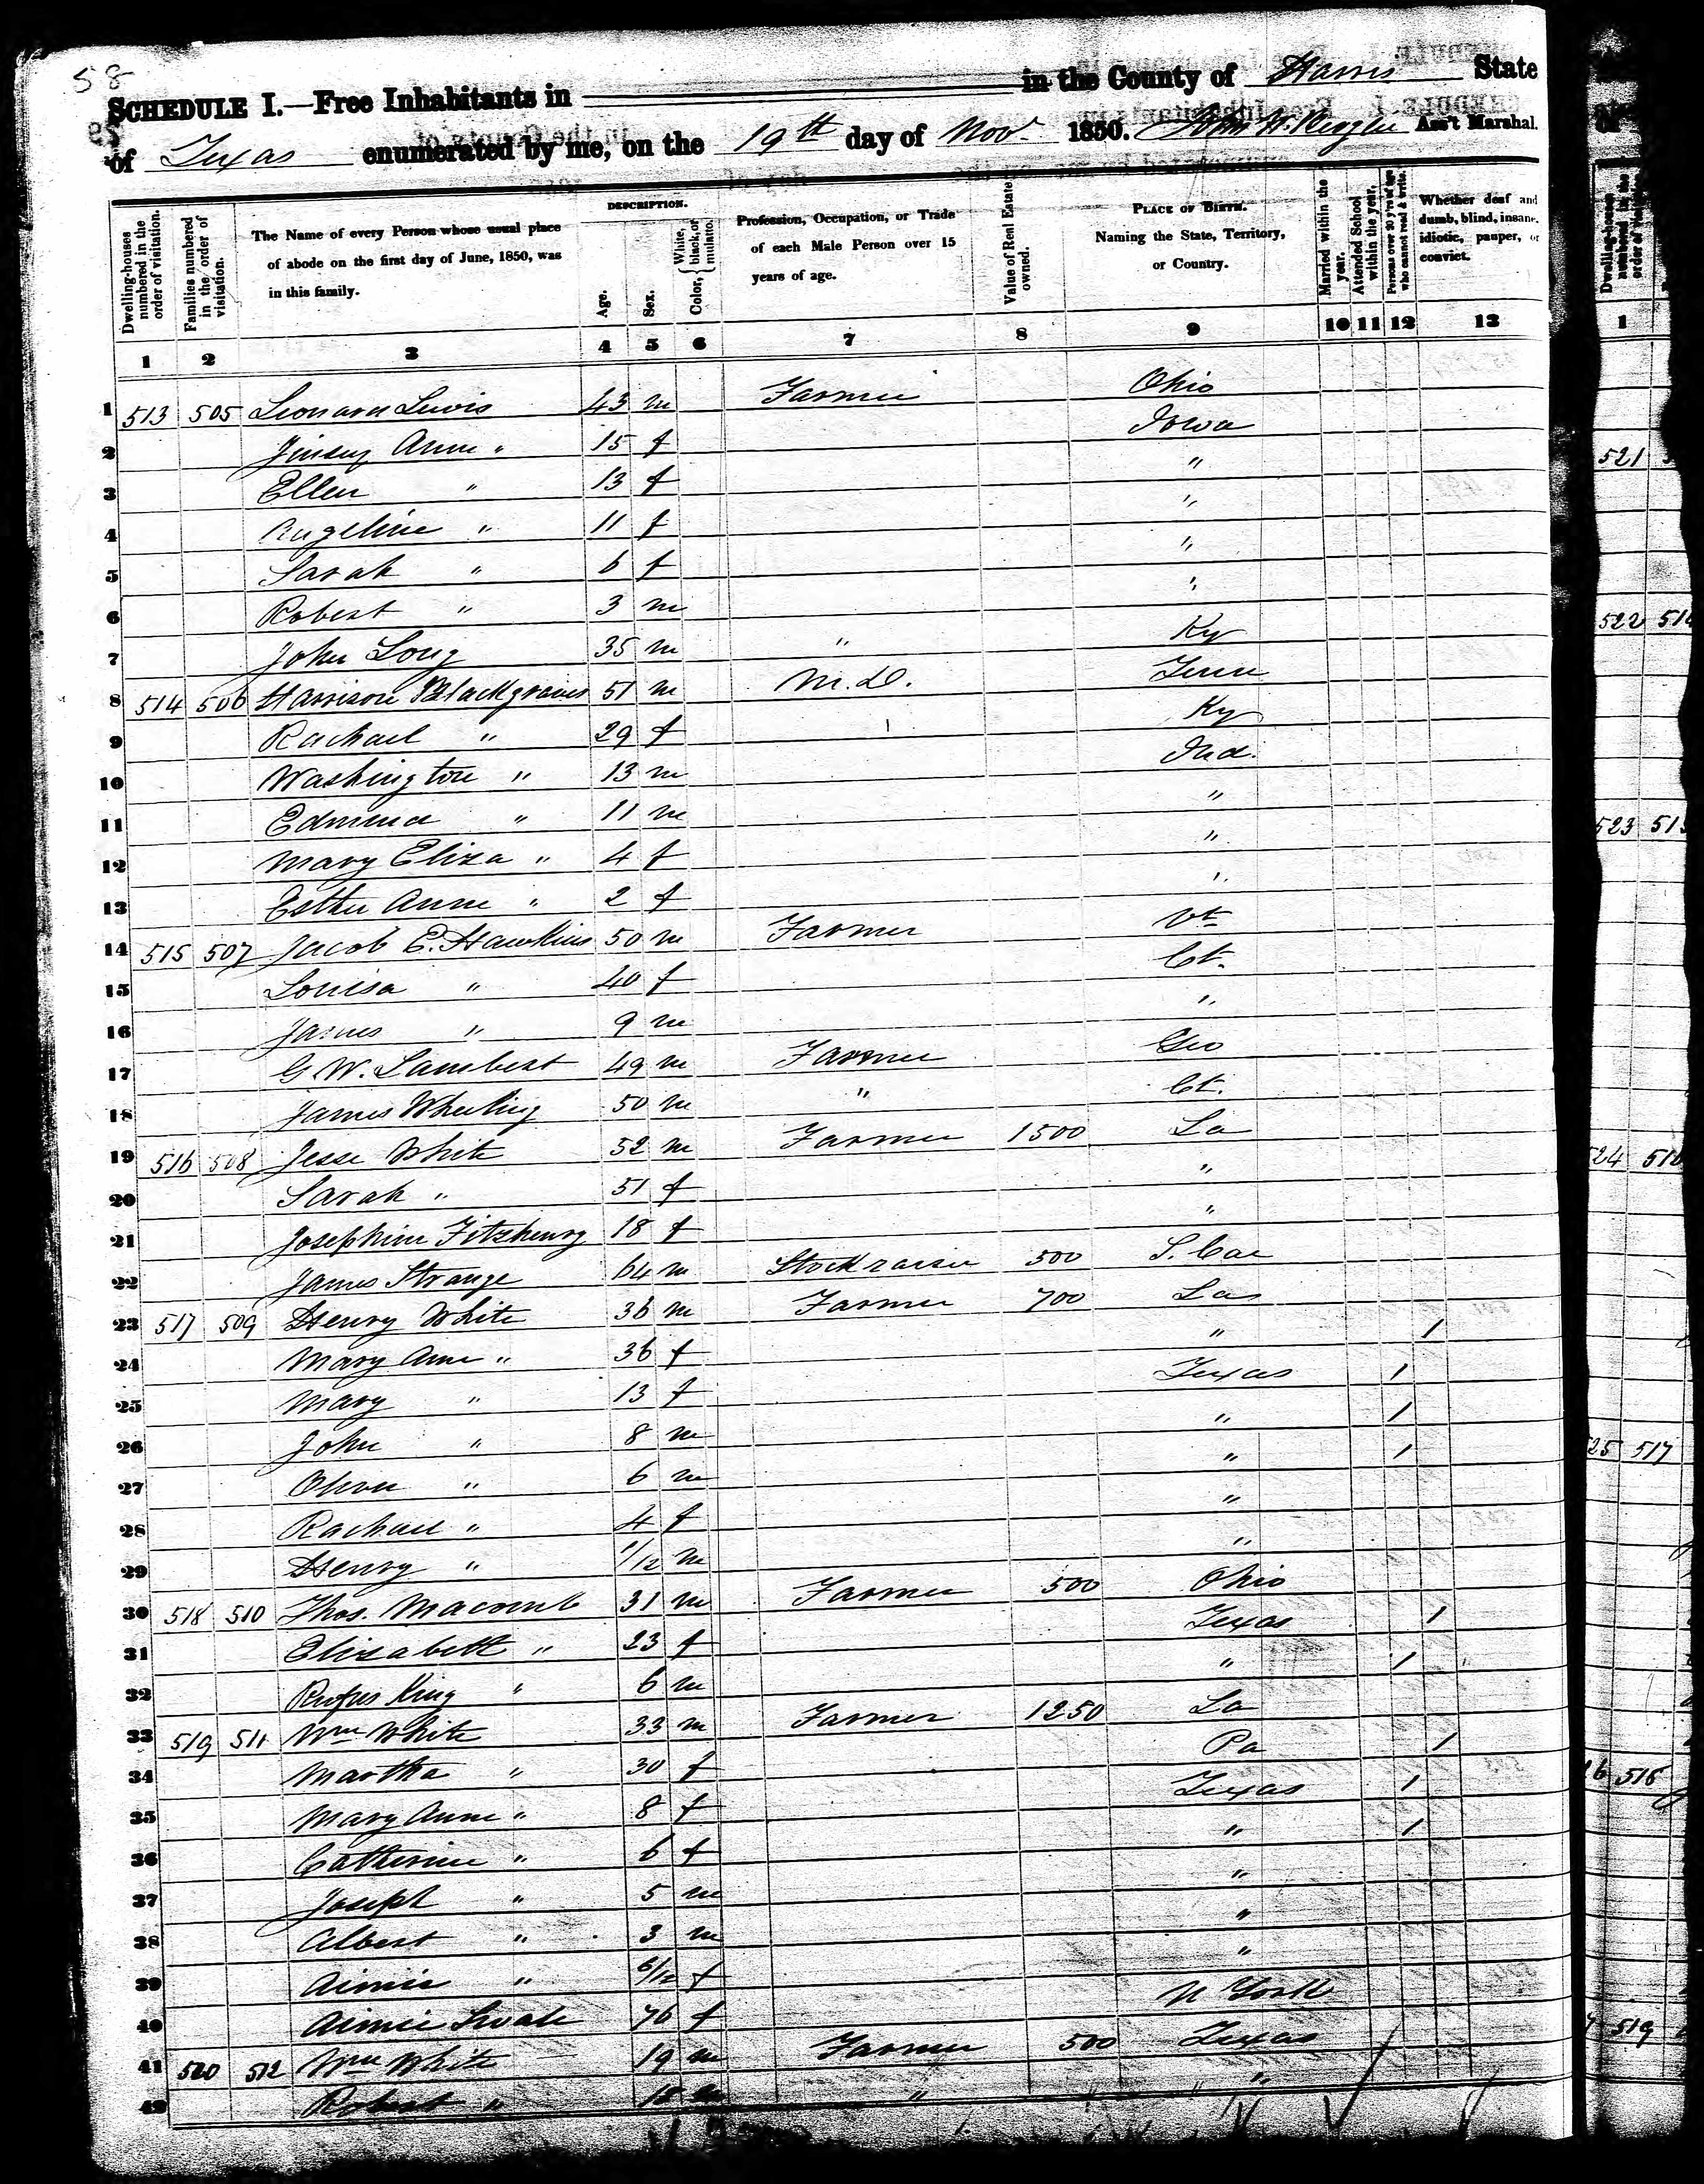 58
SCHEDULE I.—Free Inhabitants in in the County of Harris State
of Texas enumerated by me, on the 19th day of Nov. 1850. John W. Ass't Marshal.
Dwelling-houses numbered in the order of visitation.
Families numbered in the order of visitation.
The Name of every Person whose usual place of abode on the first day of June, 1850, was in this family.
DESCRIPTION.
Age.
Sex.
Color, { White, black, or mulatto.
Profession, Occupation, or Trade of each Male Person over 15 years of age.
Value of Real Estate owned.
PLACE OF BIRTH. Naming the State, Territory, or Country.
Married within the year.
Attended School within the year.
Persons over 20 y'rs of age who cannot read & write.
Whether deaf and dumb, blind, insane, idiotic, pauper, or convict.
1 2 3 4 5 6 7 8 9 10 11 12 13
1 513 505 Leonard Lewis 43 m Farmer Ohio
2 Jinsey Anne " 15 f Iowa
3 Ellen " 13 f "
4 Angeline " 11 f "
5 Sarah " 6 f "
6 Robert " 3 m "
7 John Long 35 m " Ky
8 514 506 Harrison Blackgraves 51 m M.D. Tenn
9 Rachael " 29 f Ky
10 Washington " 13 m Ind.
11 Edmund " 11 m "
12 Mary Eliza " 4 f "
13 Esther Anne " 2 f "
14 515 507 Jacob E. Hawkins 50 m Farmer Vt
15 Louisa " 40 f Ct.
16 James " 9 m "
17 G. W. Lambert 49 m Farmer Geo
18 James Wheeling 50 m " Ct.
19 516 508 Jesse White 52 m Farmer 1500 La
20 Sarah " 51 f "
21 Josephine Fitzhenry 18 f "
22 James Strange 64 m Stock raiser 500 S. Car
23 517 509 Henry White 36 m Farmer 700 La
24 Mary Ann " 36 f " /
25 Mary " 13 f Texas /
26 John " 8 m " /
27 Oliver " 6 m " /
28 Rachael " 4 f "
29 Henry " 1/12 m "
30 518 510 Thos. Macomb 31 m Farmer 500 Ohio
31 Elizabeth " 23 f Texas /
32 Rufus King " 6 m " /
33 519 511 Wm White 33 m Farmer 1250 La
34 Martha " 30 f Pa /
35 Mary Anne " 8 f Texas /
36 Catherine " 6 f " /
37 Joseph " 5 m "
38 Albert " 3 m "
39 Aimie " 6/12 f "
40 Aimie 76 f N York
41 520 512 Wm White 19 m Farmer 500 Texas
42 Robert " 18 m " " "
1
521
522 514
523 515
524 516
525 517
519